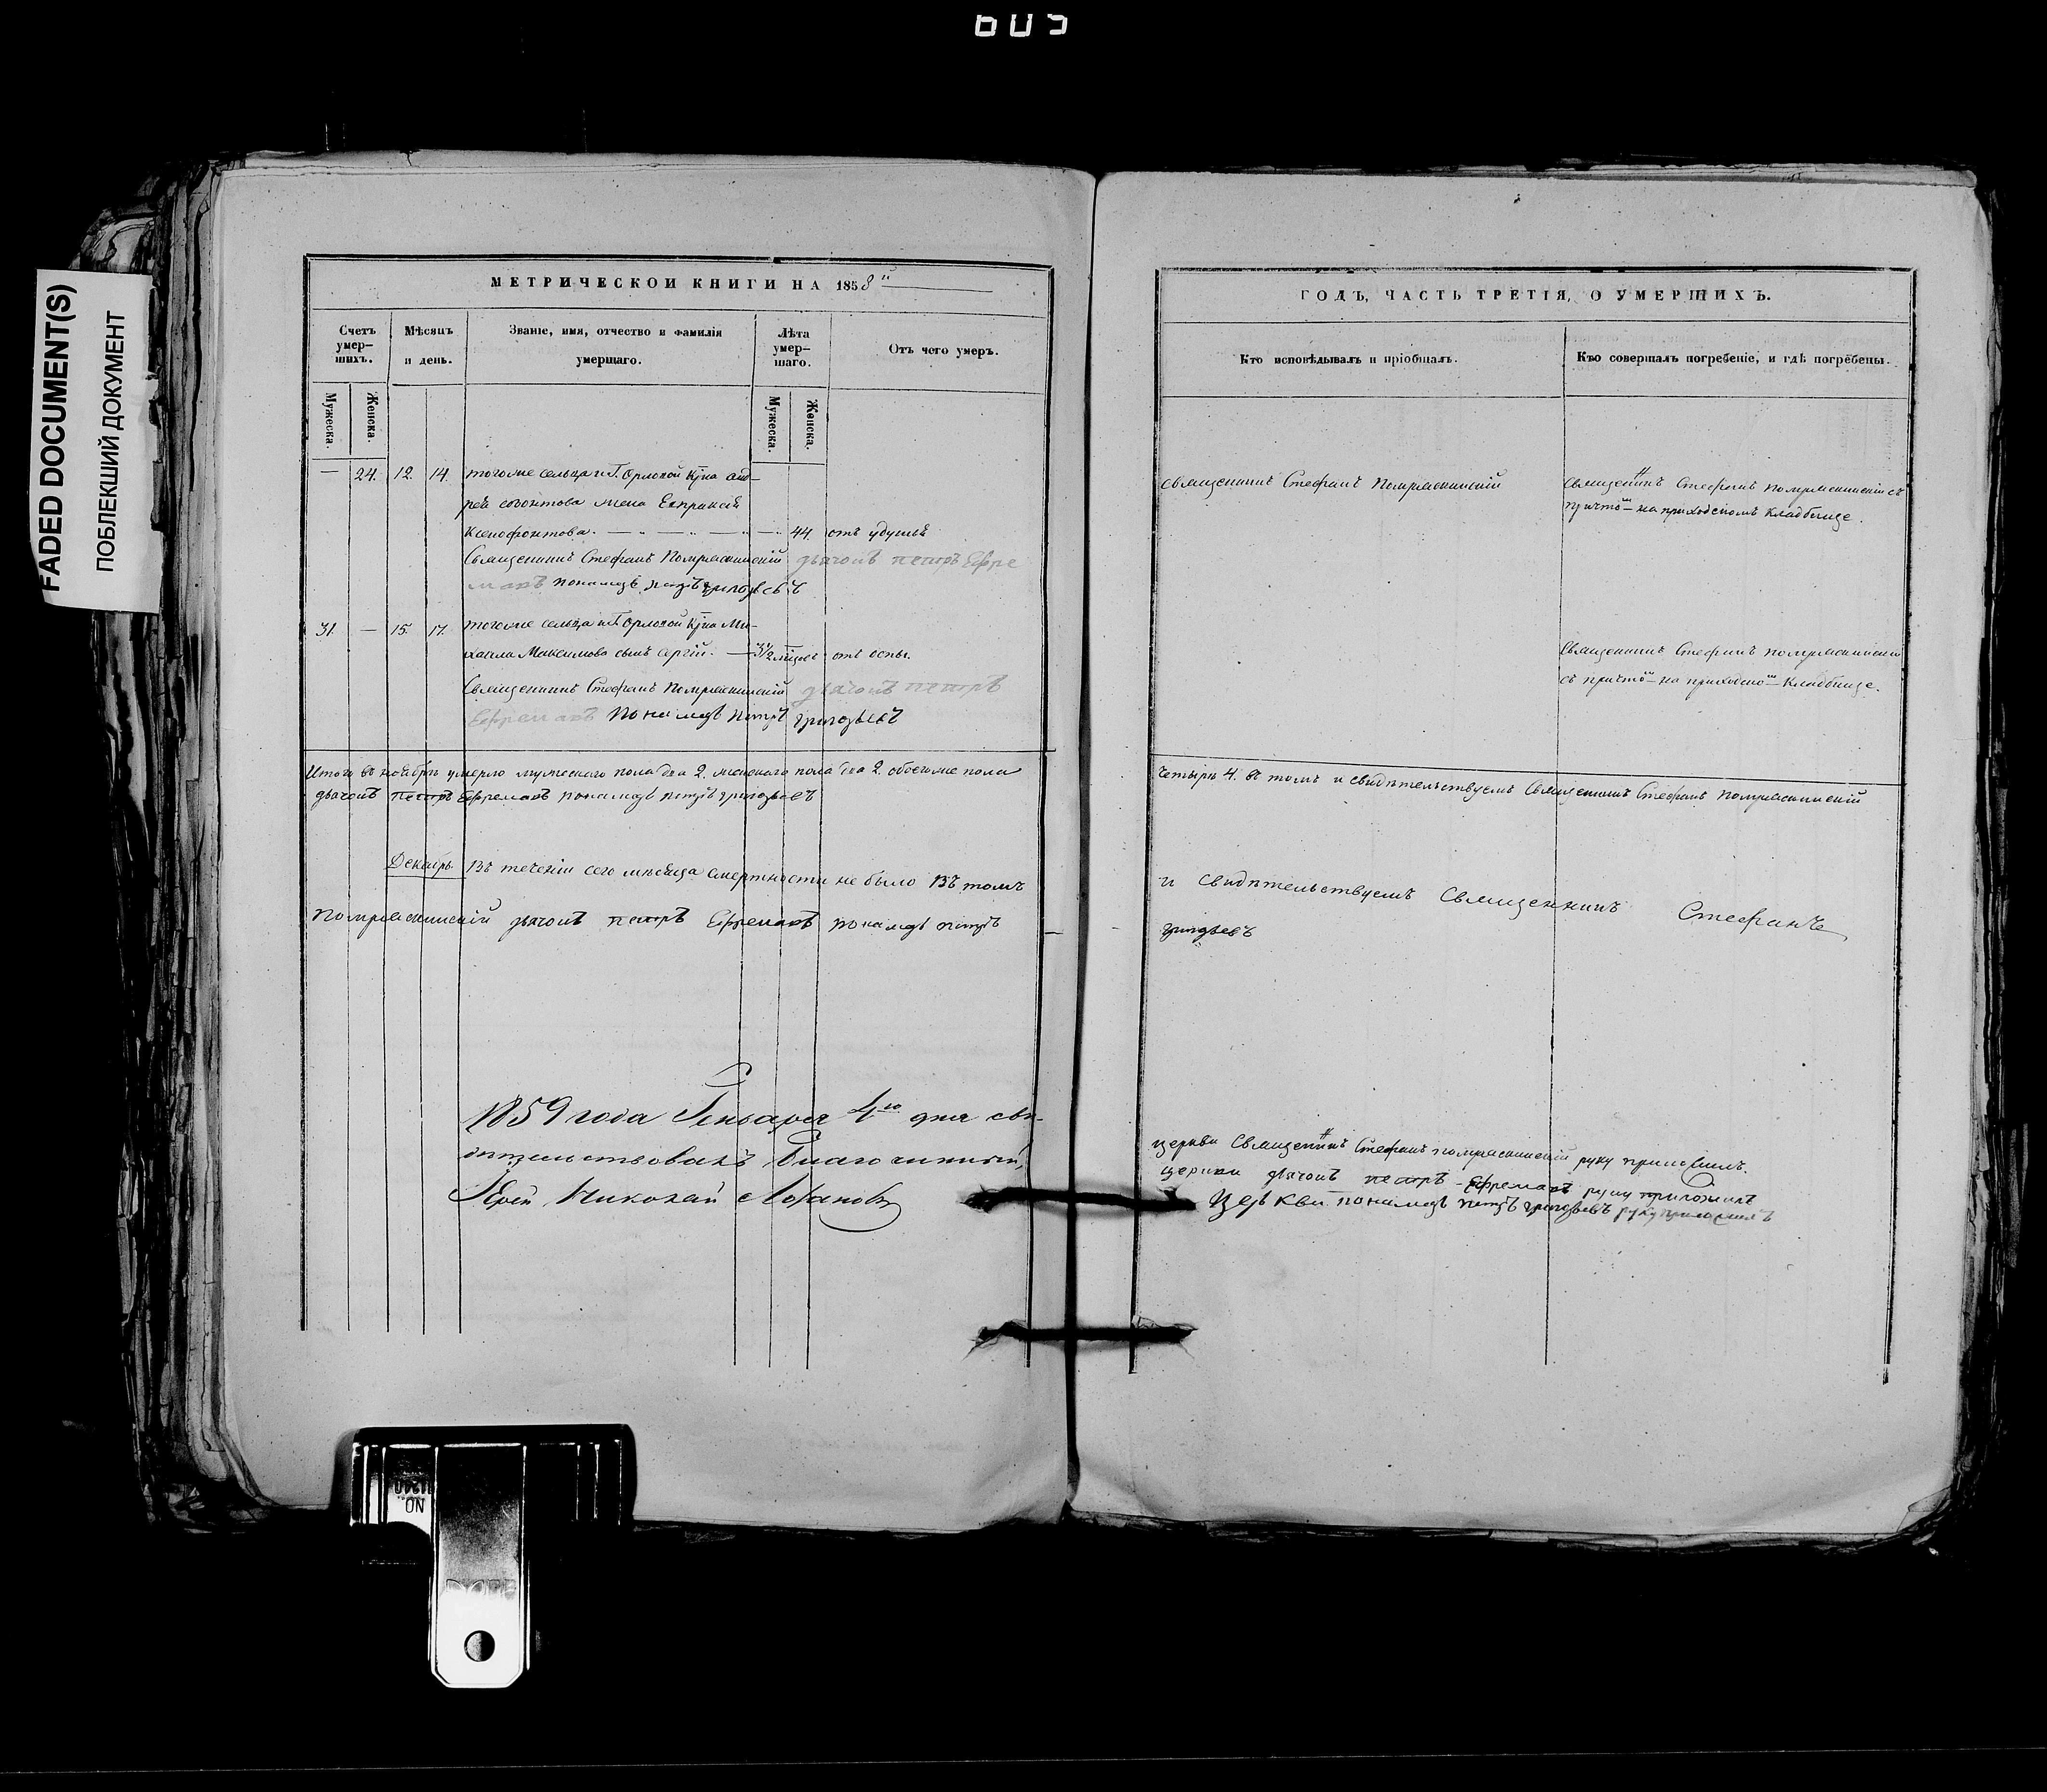 605
FADED DOCUMENT(S)
ПОБЛЕКШИЙ ДОКУМЕНТ
МЕТРИЧЕСКОЙ КНИГИ НА 1858 й
Счетъ умер-шихъ.
Мѣсяцъ и день.
Званіе, имя, отчество и фамилія умершаго.
Лѣта умер-шаго.
Отъ чего умеръ.
Мужеска.
Женска.
Мужеска.
Женска.
— 24. 12. 14. тогоже сельца и Г. Орловой Крна Анд-
рея жена
Ксенофонтова. — „ — „ — „ — 44. отъ удушья
Священникъ Стефанъ дьячокъ петръ Ефре
мовъ пономарь петръ григорьевъ
31. — 15. 17. тогоже сельца и Г. Орловой Крна Ми-
хаила Максимова сынъ Сергій. — 3 1/2 отъ оспы.
Священникъ Стефанъ дьячокъ петръ
Ефремовъ пономарь петръ григорьевъ
Итого въ ноябрѣ умерло мужескаго пола два 2. женскаго пола два 2. обоегоже пола
дьячокъ петръ Ефремовъ пономарь петръ григорьевъ
Декабрь Въ теченіи сего мѣсяца смертности не было Въ томъ
дьячокъ петръ Ефремовъ пономарь петръ
1859 года Генваря 4го дня сви-
дѣтельствовалъ Благочинный,
Іерей Николай
ГОДЪ, ЧАСТЬ ТРЕТІЯ, О УМЕРШИХЪ.
Кто исповѣдывалъ и пріобщалъ.
Кто совершалъ погребеніе, и гдѣ погребены.
Священникъ Стефанъ
Священникъ Стефанъ съ
причто на приходскомъ Кладбище.
Священникъ Стефанъ
съ причто на приходско Кладбище.
четыре 4. въ томъ и свидѣтельствуемъ Священникъ Стефанъ
и свидѣтельствуемъ Священникъ Стефанъ
григорьевъ
церкви Священникъ Стефанъ руку приложилъ.
церкви дьячокъ петръ Ефремовъ руку приложилъ
Церкви пономарь петръ григорьевъ руку приложилъ